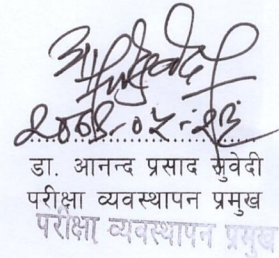 डा. आनन्द प्रसाद सुवेदी
परीक्षा व्यवस्थापन प्रमुख
परीक्षा व्यवस्थापन प्रमुख